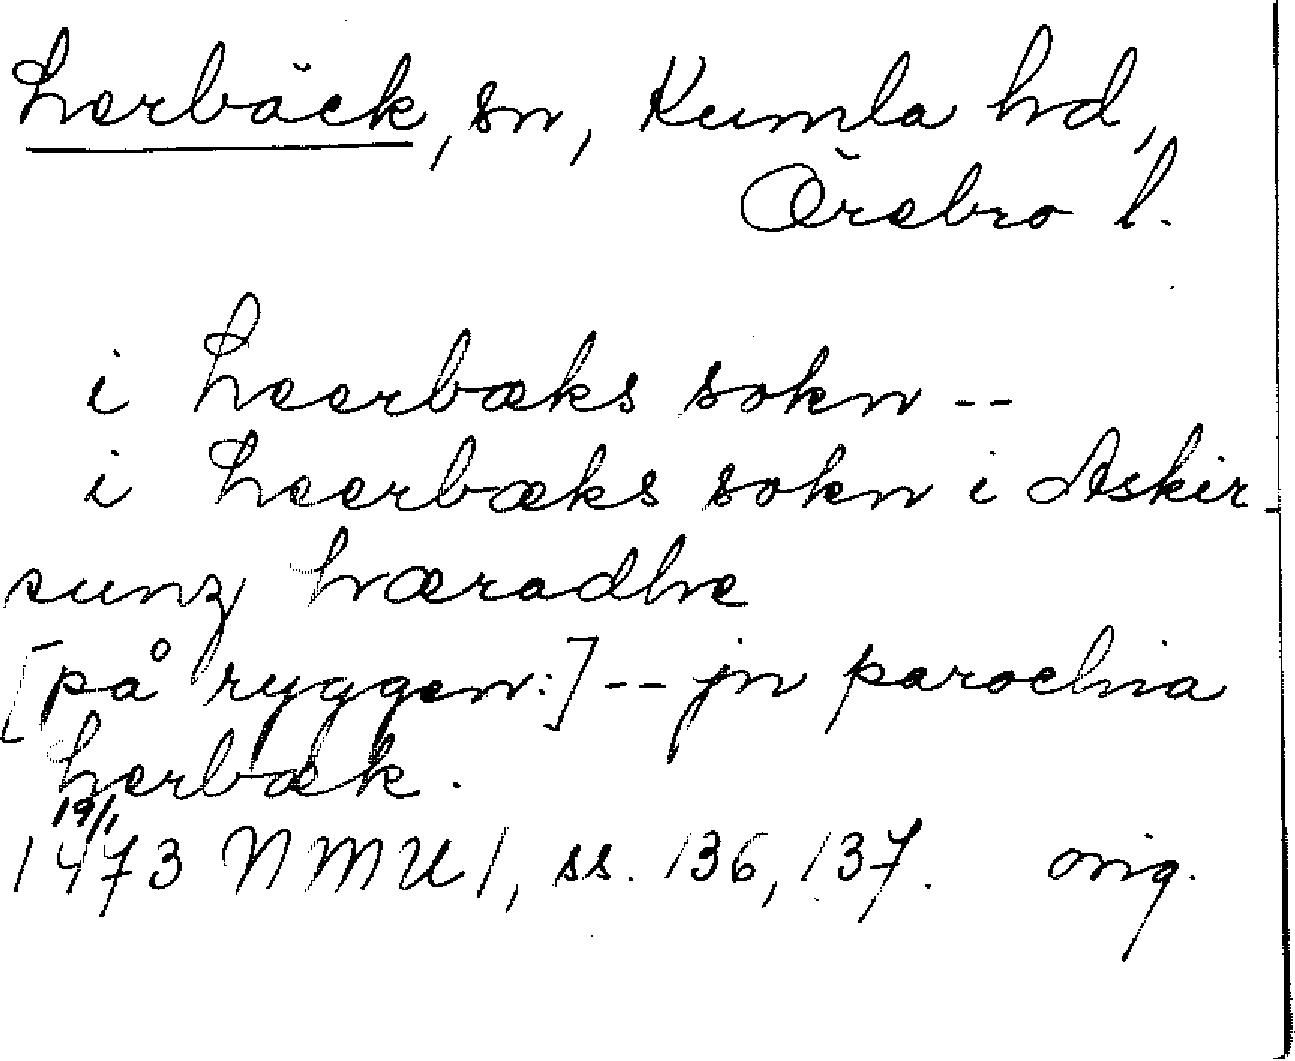 Lerbäck, sn, Kumla hd,
Örebro l.
i Leerbæks sokn --
i Leerbæks sokn i Askir
sunz hæradhe
[på ryggen:] -- jn parochia
Lerbæk.
19/1
1473 NMU 1, ss. 136, 137. orig.